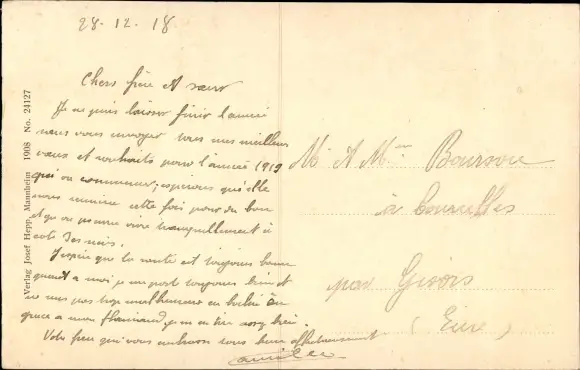 28-12-18
Chers frère et sœur
Je ne puis laisser finir l'année
sans vous envoyer tous mes meilleurs
vœux et souhaits pour l'année 1919
qui va commencer, espérons qu'elle
nous cette fois pour de bon
et qu'on pourra vivre tranquillement à
coté des siens.
J'espère que la santé est toujours bonne
quant a moi je me porte toujours bien et
ne suis pas trop malheureux en
grace a mon je m'en tire assez bien.
Votre frère qui vous embrasse tous bien affectueusement
Camille
Mr et Mme Boursou
à Courcelles
par Gisors
(Eure)
Verlag Josef Hepp, Mannheim 1908 No. 24127